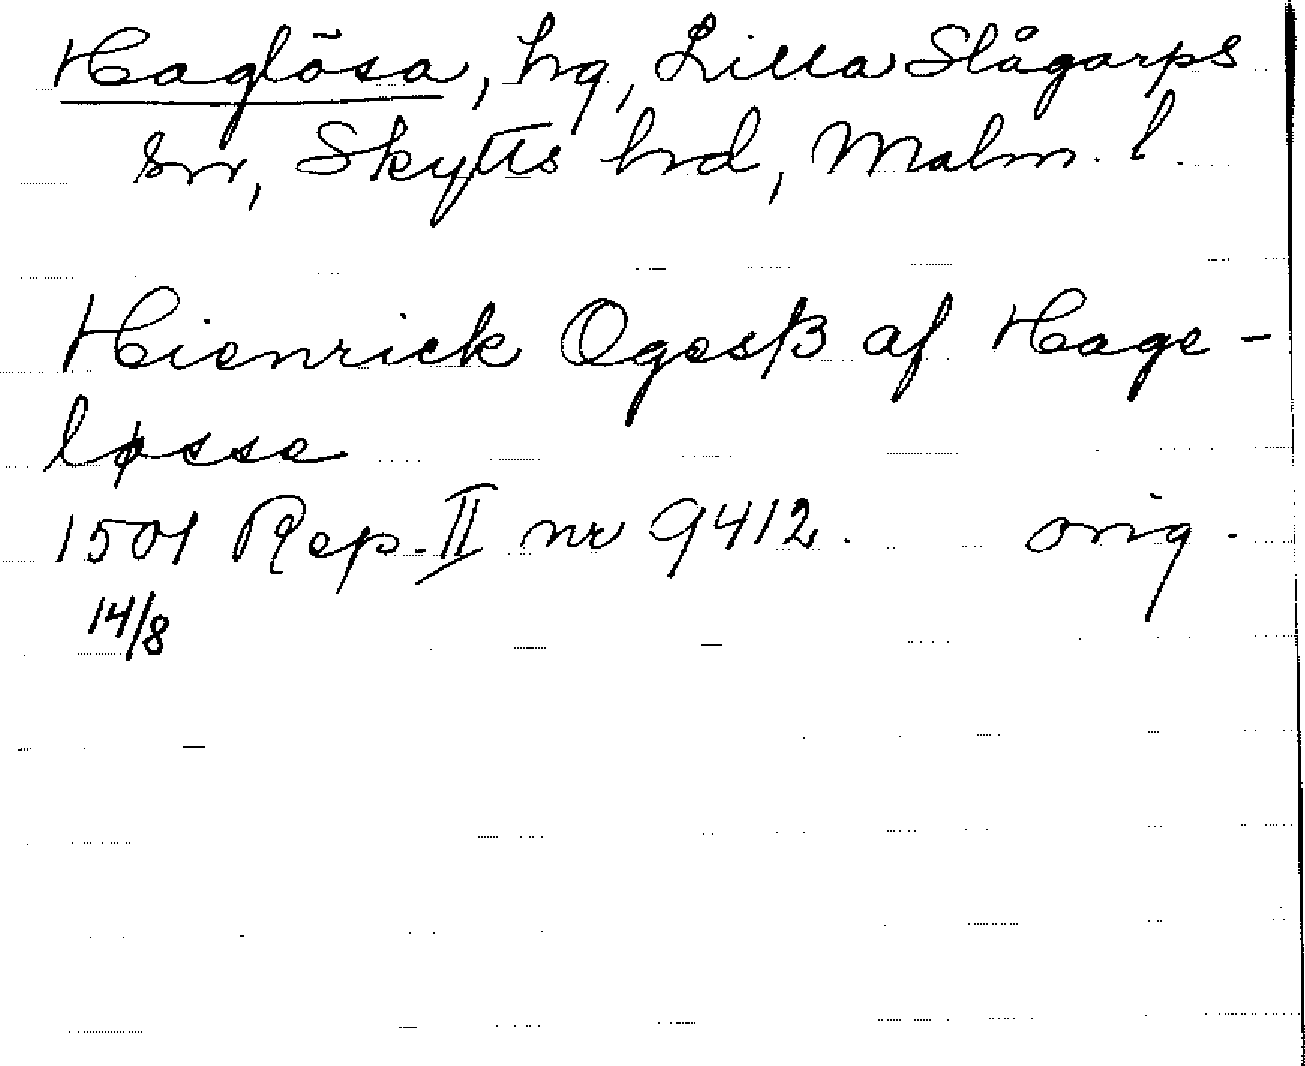 Haglösa, hg, Lilla Slågarps
sn, Skytts hrd, Malm. l.
Hienrick Ogesß af Hage-
løsse
1501 Rep. II nr 9412. orig.
14/8